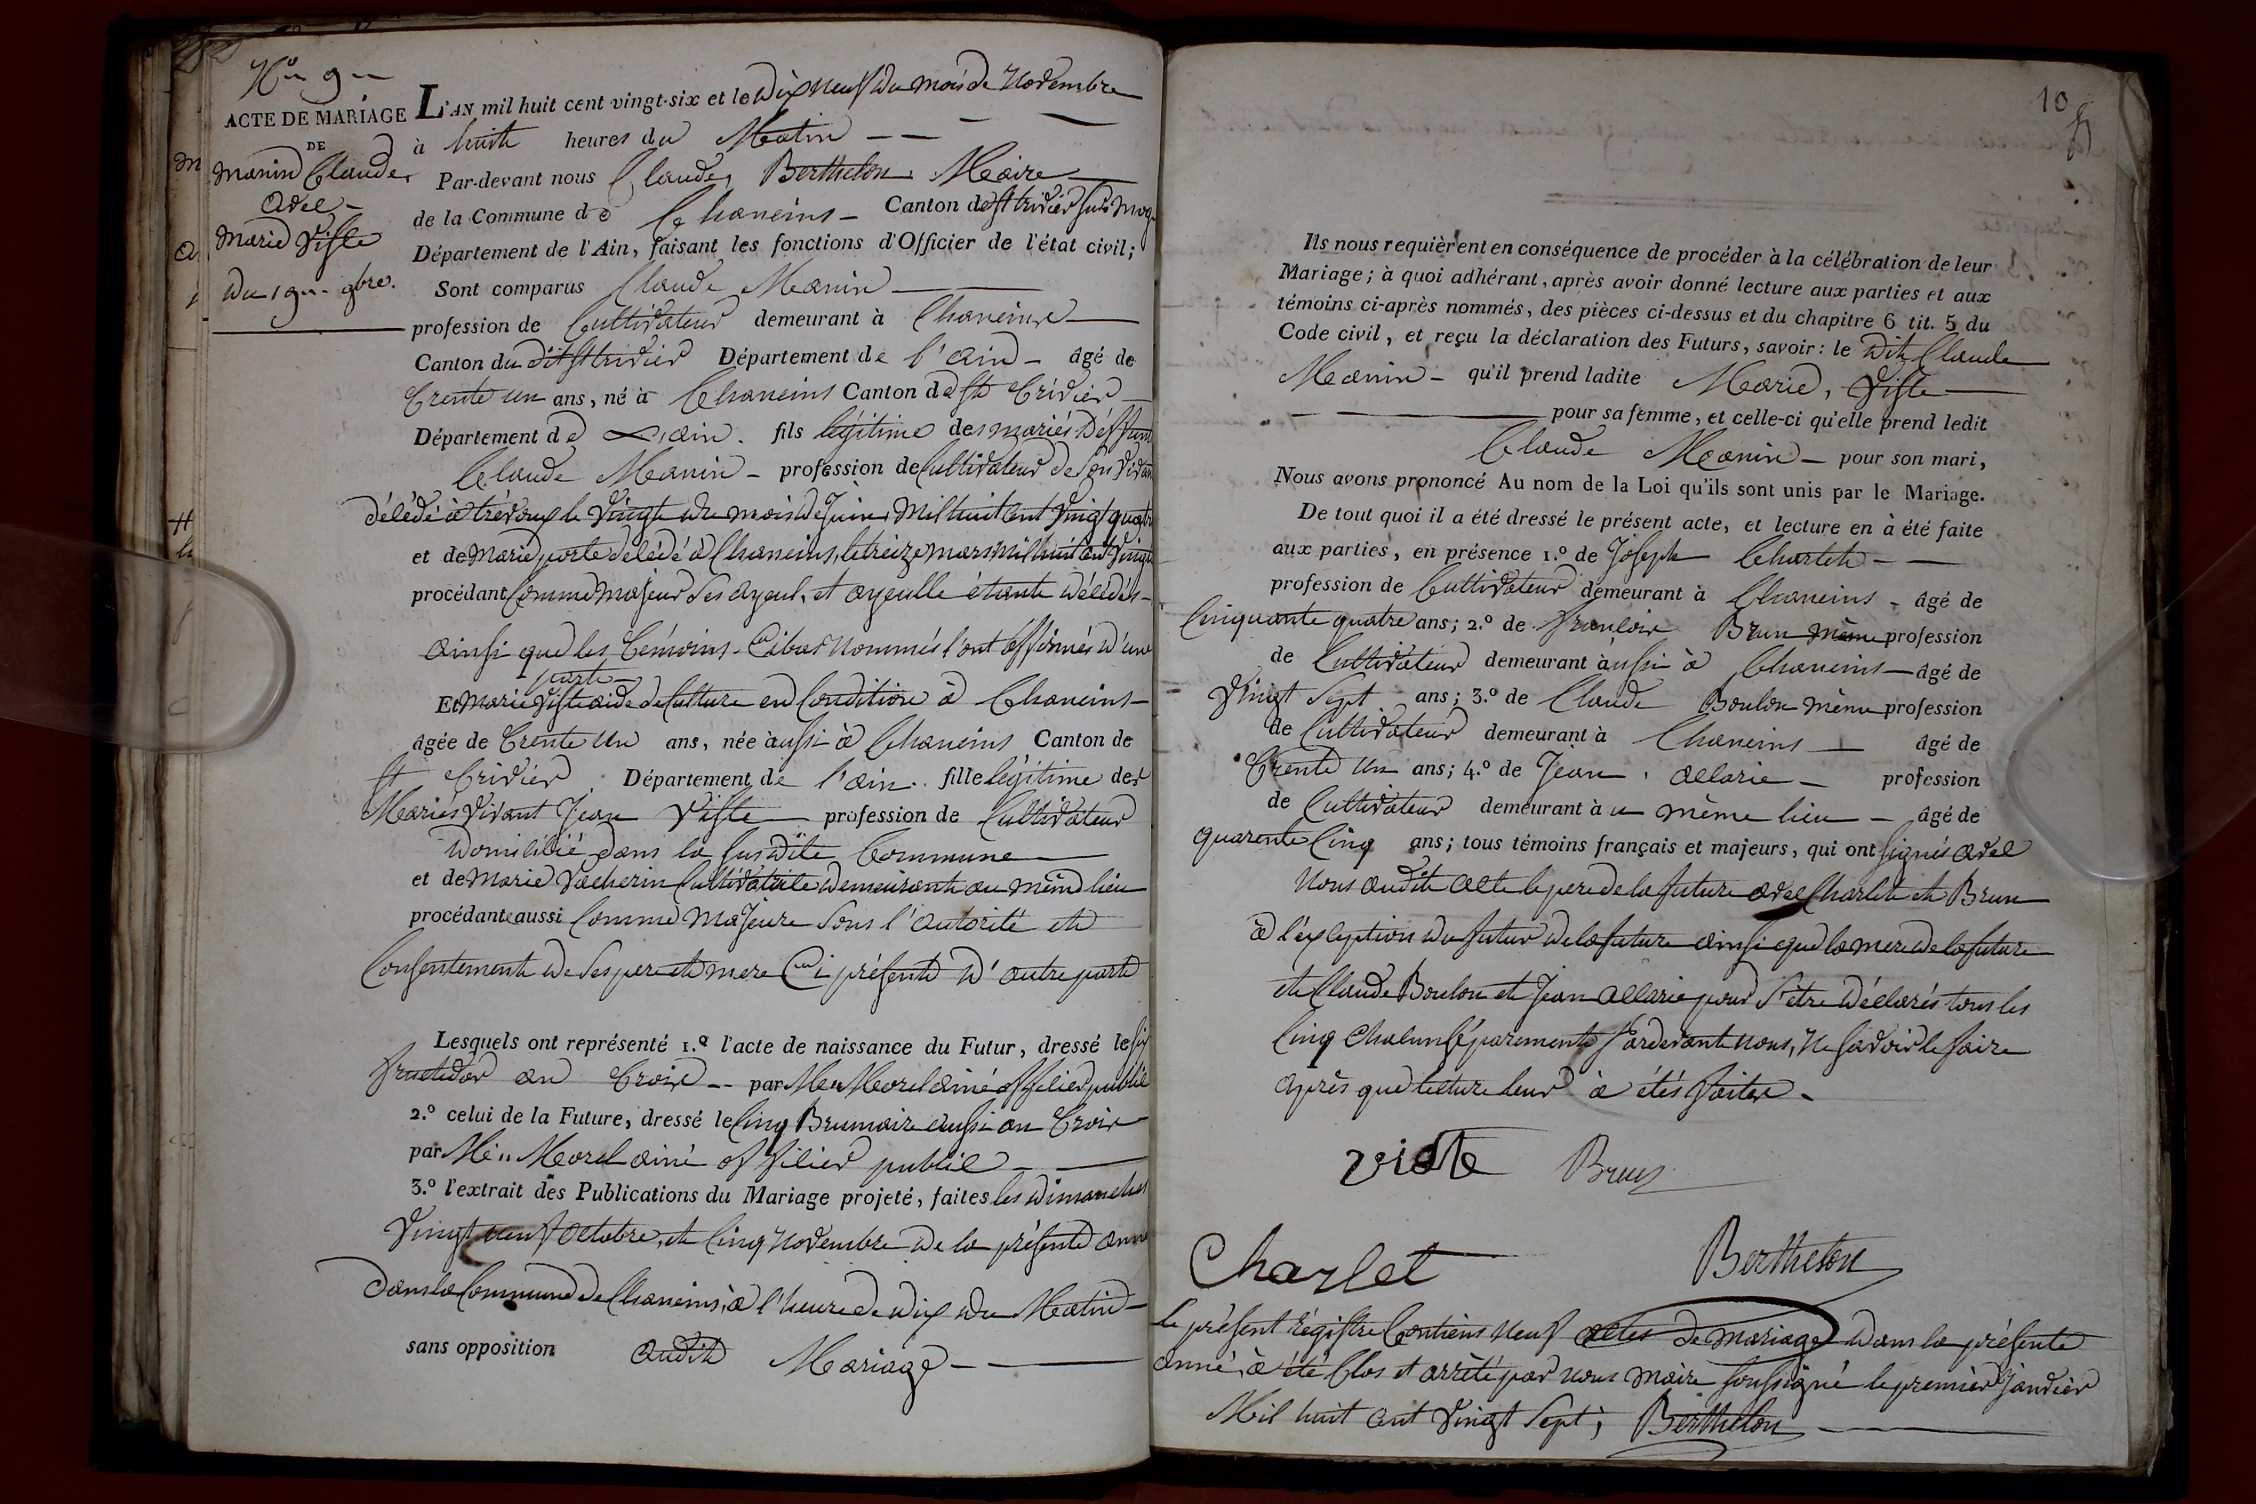 N.o 9
ACTE DE MARIAGE
DE
Manin Claude,
avec
Marie Viste
du 19 9bre.
L'AN mil huit cent vingt-six et le dix neuf du mois de Novembre
à huit heures du Matin
Par-devant nous Claude Berthelon Maire
de la Commune de Chaneins Canton de st trivier sur mog
Département de l'Ain, faisant les fonctions d'Officier de l'état civil;
Sont comparus Claude Manin
profession de Cultivateur demeurant à Chaneins
Canton du dit st trivier Département de l'ain âgé de
Trente un ans, né à Chaneins Canton de st Trivier
Département de L'ain. fils légitime des mariés Deffunt
Claude Manin profession de Cultivateur de son vivant
décédé à trévoux le vingt du mois de Juin Mil huit cent vingt quatre
et de Marie porte décédé à Chaneins, le treize mars mil huit cent vingt
procédant Comme majeur ses ayeul, et ayeulle étante décédés
ainsi que les Témoins Cibas nommés l'ont affirmés d'une
parte
Et Marie Viste aide de Culture en Condition à Chaneins
âgée de Trente Un ans, née aussi à Chaneins Canton de
st Trivier Département de l'ain. fille légitime des
Mariés Vivant Jean Viste profession de Cultivateur
domicilié dans la susdite Commune
et de Marie Vacherin Cultivatrice demeurante au même lieu
procédante aussi Comme Majeure sous l'autorité et
Consentement de ses pere et mere Ci présente d'autre parte
Lesquels ont représenté 1.º l'acte de naissance du Futur, dressé le six
fructidor an Trois par Me Morel ainé officier public
2.º celui de la Future, dressé le Cinq Brumaire aussi an Trois
par Me Morel ainé officier public
3.º l'extrait des Publications du Mariage projeté, faites les dimanches
Vingt neuf Octobre, et Cinq Novembre de la présente anné
dans la Commune de Chaneins, à l'heure de dix du Matin
sans opposition audit Mariage
10
Ils nous requièrent en conséquence de procéder à la célébration de leur
Mariage; à quoi adhérant, après avoir donné lecture aux parties et aux
témoins ci-après nommés, des pièces ci-dessus et du chapitre 6 tit. 5 du
Code civil, et reçu la déclaration des Futurs, savoir: le dit Claude
Manin qu'il prend ladite Marie, Viste
pour sa femme, et celle-ci qu'elle prend ledit
Claude Manin pour son mari,
Nous avons prononcé Au nom de la Loi qu'ils sont unis par le Mariage.
De tout quoi il a été dressé le présent acte, et lecture en à été faite
aux parties, en présence 1.º de Joseph Charlet
profession de Cultivateur demeurant à Chaneins âgé de
Cinquante quatre ans; 2.º de françois Brun même profession
de Cultivateur demeurant aussi à Chaneins âgé de
Vingt sept ans; 3.º de Claude Boulon même profession
de Cultivateur demeurant à Chaneins âgé de
Trente un ans; 4.º de Jean Allarie profession
de Cultivateur demeurant à u même lieu âgé de
quarente Cinq ans; tous témoins français et majeurs, qui ont signés avec
Nous audit acte le pere de la future avec Charlet et Brun
à l'exception du futur de la future ainsi que la mere de la future
et Claude Boulon et Jean Allarie pour s'être déclarés tous les
Cinq Chacun séparemente Pardevante nous, Ne savoir le faire
après que lecture leur à étés faites
viste Brun
Charlet Berthelon
le présent régistre Contiens neuf actes de mariage dans la présente
anné, à été Clos et arrêté par nous maire soussigné le premier Janvier
Mil huit cent Vingt sept; Berthelon